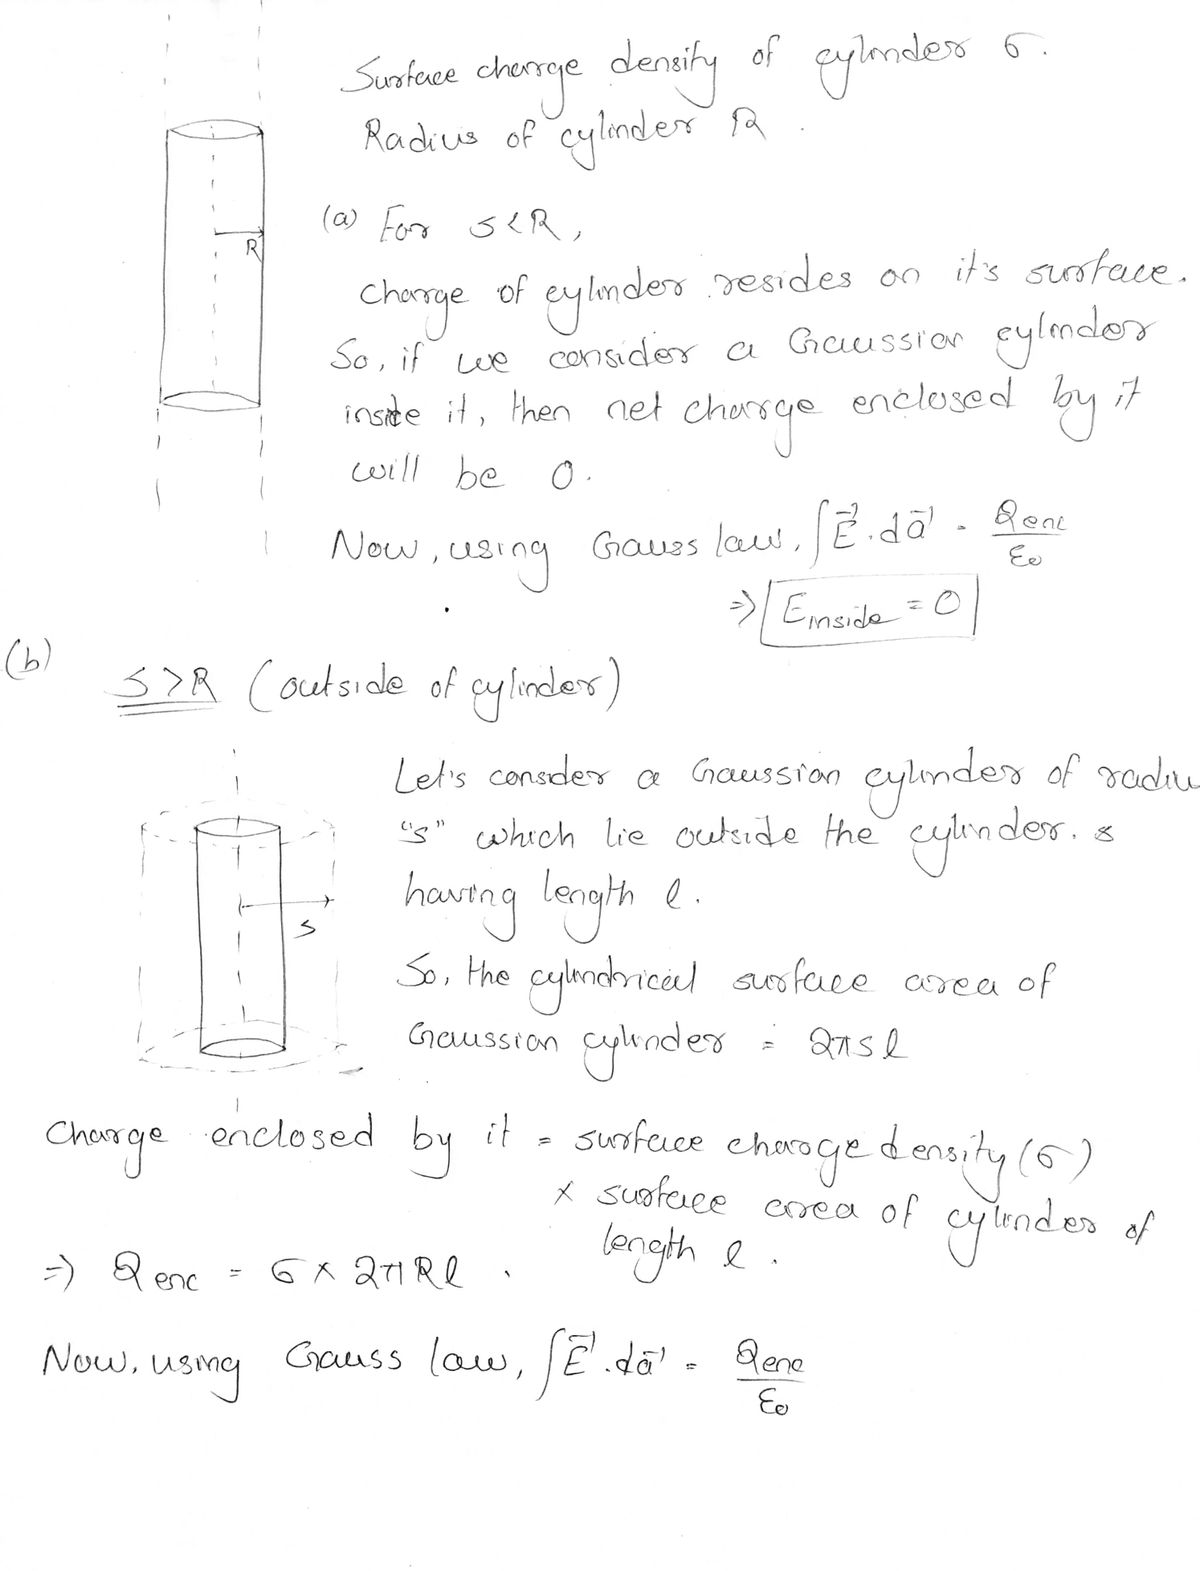 Surface charge density of cylinder σ.
Radius of cylinder R.
R
(a) For s<R,
Charge of cylinder resides on it's surface.
So, if we consider a Gaussian cylinder
inside it, then net charge enclosed by it
will be 0.
Now, using Gauss law, ∫E⃗.da⃗ = Qenc/ε0
⇒ Einside = 0
(b)
s>R (outside of cylinder)
Let's consider a Gaussian cylinder of radiu
"s" which lie outside the cylinder. &
having length l.
s
So, the cylindrical surface area of
Gaussian cylinder = 2πsl
Charge enclosed by it = surface charge density (σ)
× surface area of cylinder of
length l.
⇒ Qenc = σ × 2πRl.
Now, using Gauss law, ∫E⃗.da⃗ = Qenc/ε0